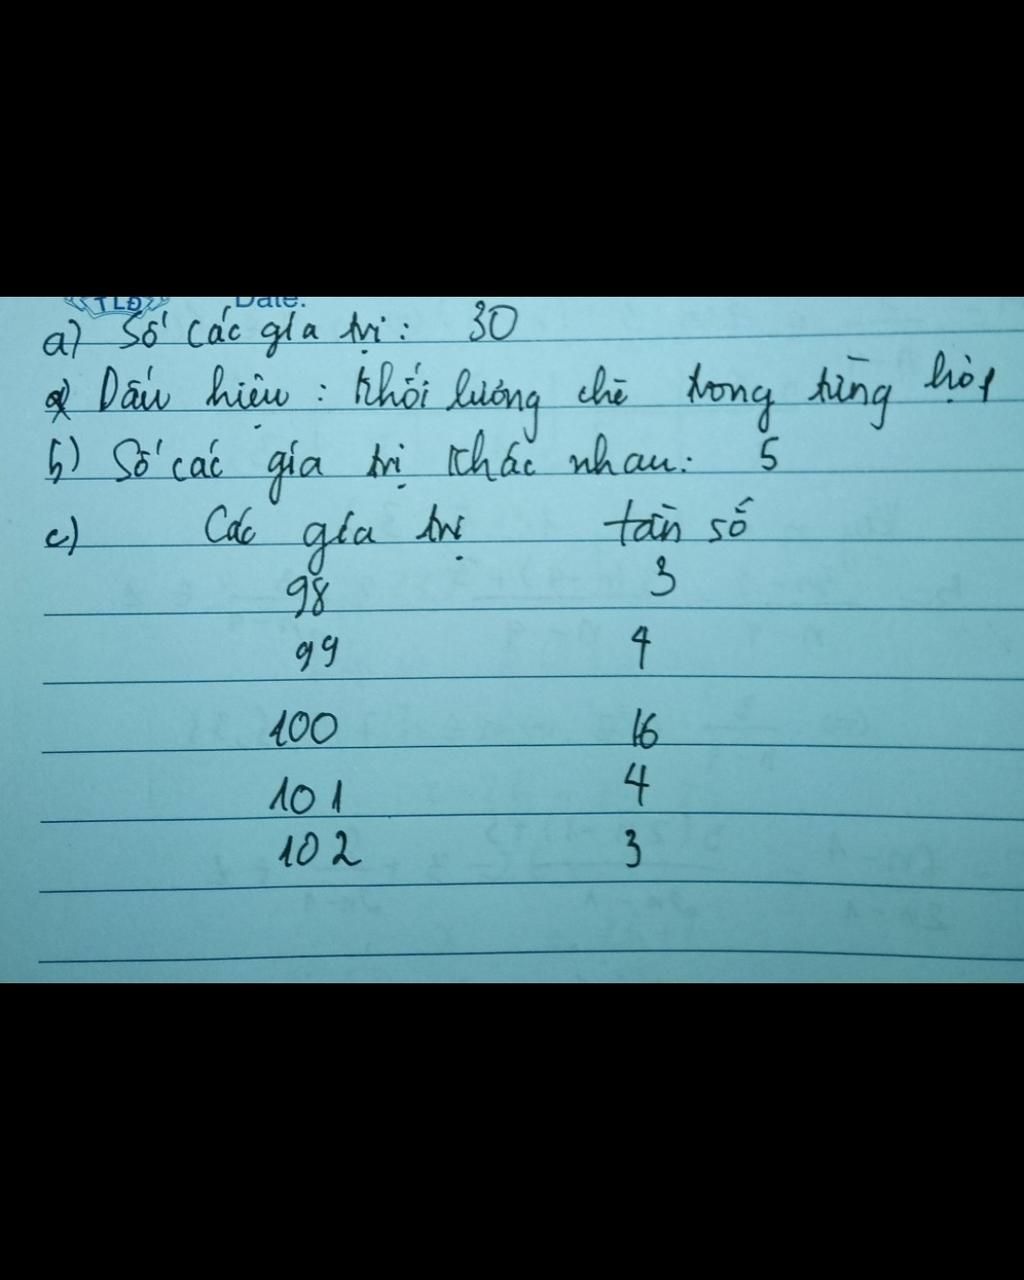 TLĐ Date:
a) Số các gía trị: 30
Dấu hiệu: Khối lượng chè trong từng hộp
b) Số các gía trị khác nhau: 5
c) Các gía trị tần số
98 3
99 4
100 16
101 4
102 3